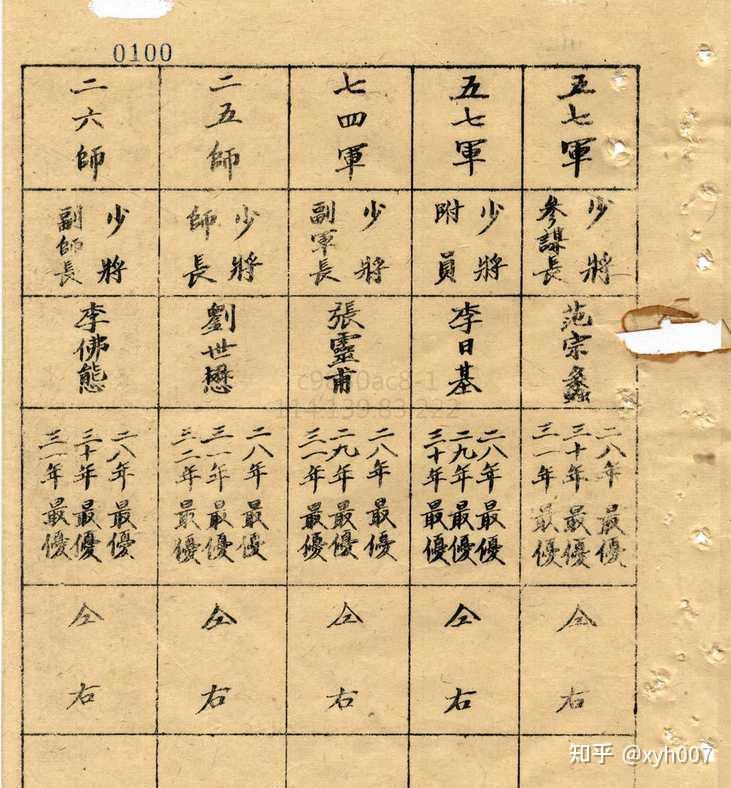 0100
五七軍
少將
參謀長
范宗蠡
二八年最優
三十年最優
三一年最優
仝右
五七軍
少將
附員
李日基
二八年最優
二九年最優
三十年最優
仝右
七四軍
少將
副軍長
張靈甫
二八年最優
二九年最優
三一年最優
仝右
二五師
少將
師長
劉世懋
二八年最優
三一年最優
三二年最優
仝右
二六師
少將
副師長
李佛態
二八年最優
三十年最優
三一年最優
仝右
114.139.83.222
知乎 @xyh007